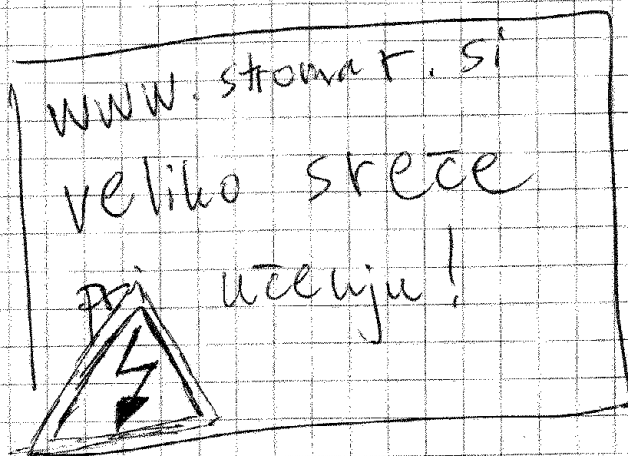 www.stromar.si
veliko sreče
pri učenju!